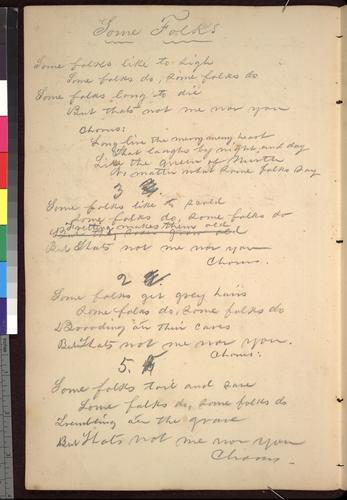 Some Folks
Some folks like to sigh
Some folks do, some folks do
Some folks long to die
But thats not me nor you
Chorus:
Long live the merry merry heart
That laughs by night and day
Like the queen of Mirth
No matter what some folks say
3
Some folks like to scold
Some folks do, some folks do
Fretting makes them old
But thats not me nor you
Chorus.
2
Some folks get grey hairs
Some folks do, some folks do
Brooding o'er their cares
But thats not me nor you.
Chorus:
5.
Some folks toil and save
Some folks do, some folks do
Trembling o'er the grave
But thats not me nor you
Chorus